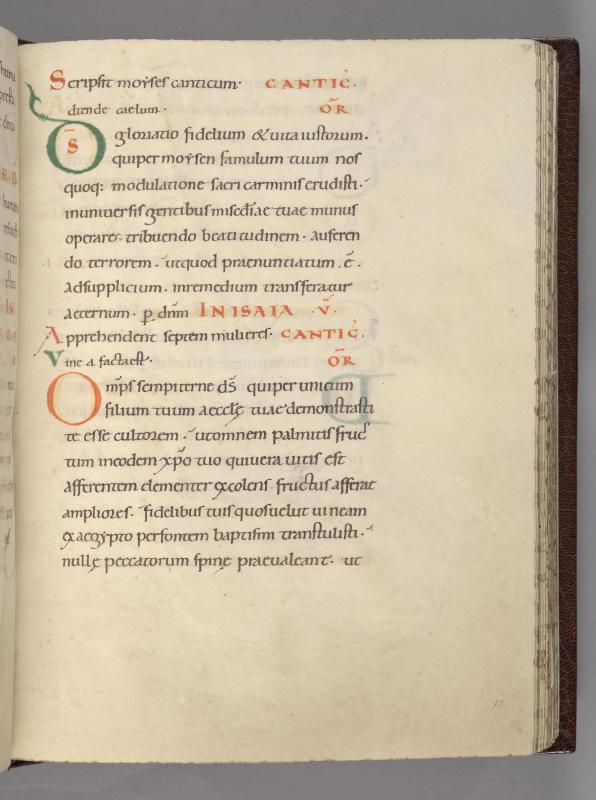 Scripsit moyses canticum· CANTIC̄.
dtende caelum· ŌR
DS̄ gloriatio fidelium & uita iustorum·
qui per moysen famulum tuum nos
quoq: modulatione sacri carminis erudisti·
in uniuersis gentibus misc̄diae tuae munus
operare· tribuendo beatitudinem· auferen
do terrorem· ut quod praenuntiatum ·ē·
ad supplicium· in remedium transferatur
aeternum· p̱ dn̄m IN ISAIA ·V̄·
Apprehendent septem mulieres· CANTIC̄.
Vinea facta est· ŌR
Om̄ps sempiterne ds̄ qui per unicum
filium tuum aecclę tuae demonstrasti
te esse cultorem· ut omnem palmitis fruc
tum in eodem xp̄o tuo qui uera uitis est
afferentem clementer excolens fructus afferat
ampliores· fidelibus tuis quos uelut uineam
ex aegypto per fontem baptismi transtulisti·
nullę peccatorum spinę praeualeant· ut